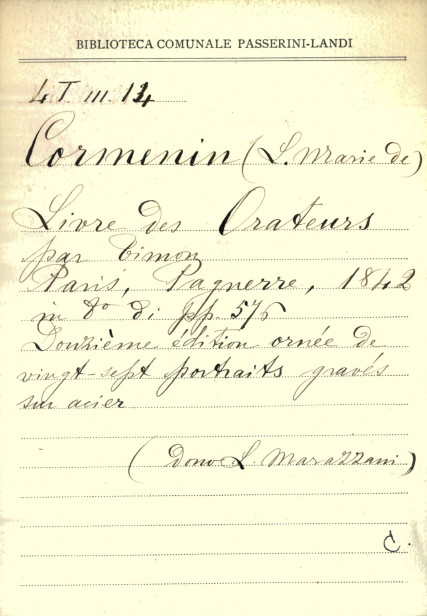 BIBLIOTECA COMUNALE PASSERINI-LANDI
4 T. III. 14
Cormenin (L. Marie de)
Livre des Orateurs
par Timon
Paris, Pagnerre, 1842
in 8º di pp. 576
Douzième édition ornée de
vingt-sept portraits gravés
sur acier
(dono L. Marazzani)
C.